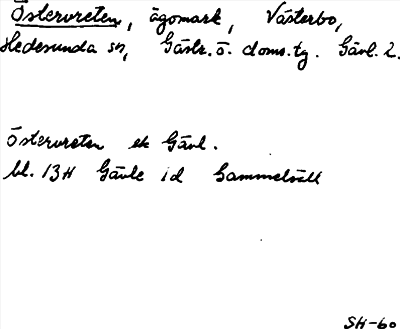 Östervreten, ägomark, Västerbo,
Hedesunda sn, Gästr. ö. doms.tg. Gävl. l.
Östervreten ek Gävl.
bl. 13H Gävle id Gammelsäll
SH-60